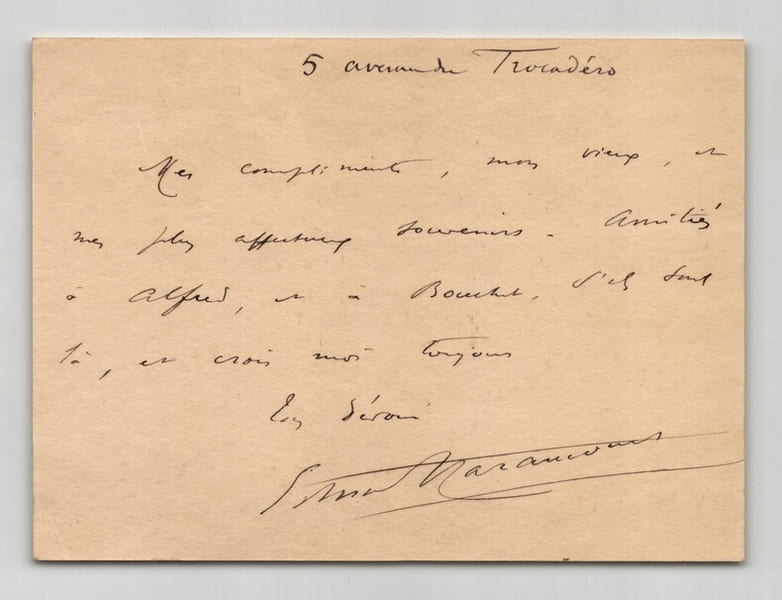 5 avenue du Trocadéro
Mes compliments, mon vieux, et
mes plus affectueux souvenirs. Amitiés
à Alfred, et à Bouchet, s'ils sont
là, et crois moi toujours
Ton dévoué
Haraucourt